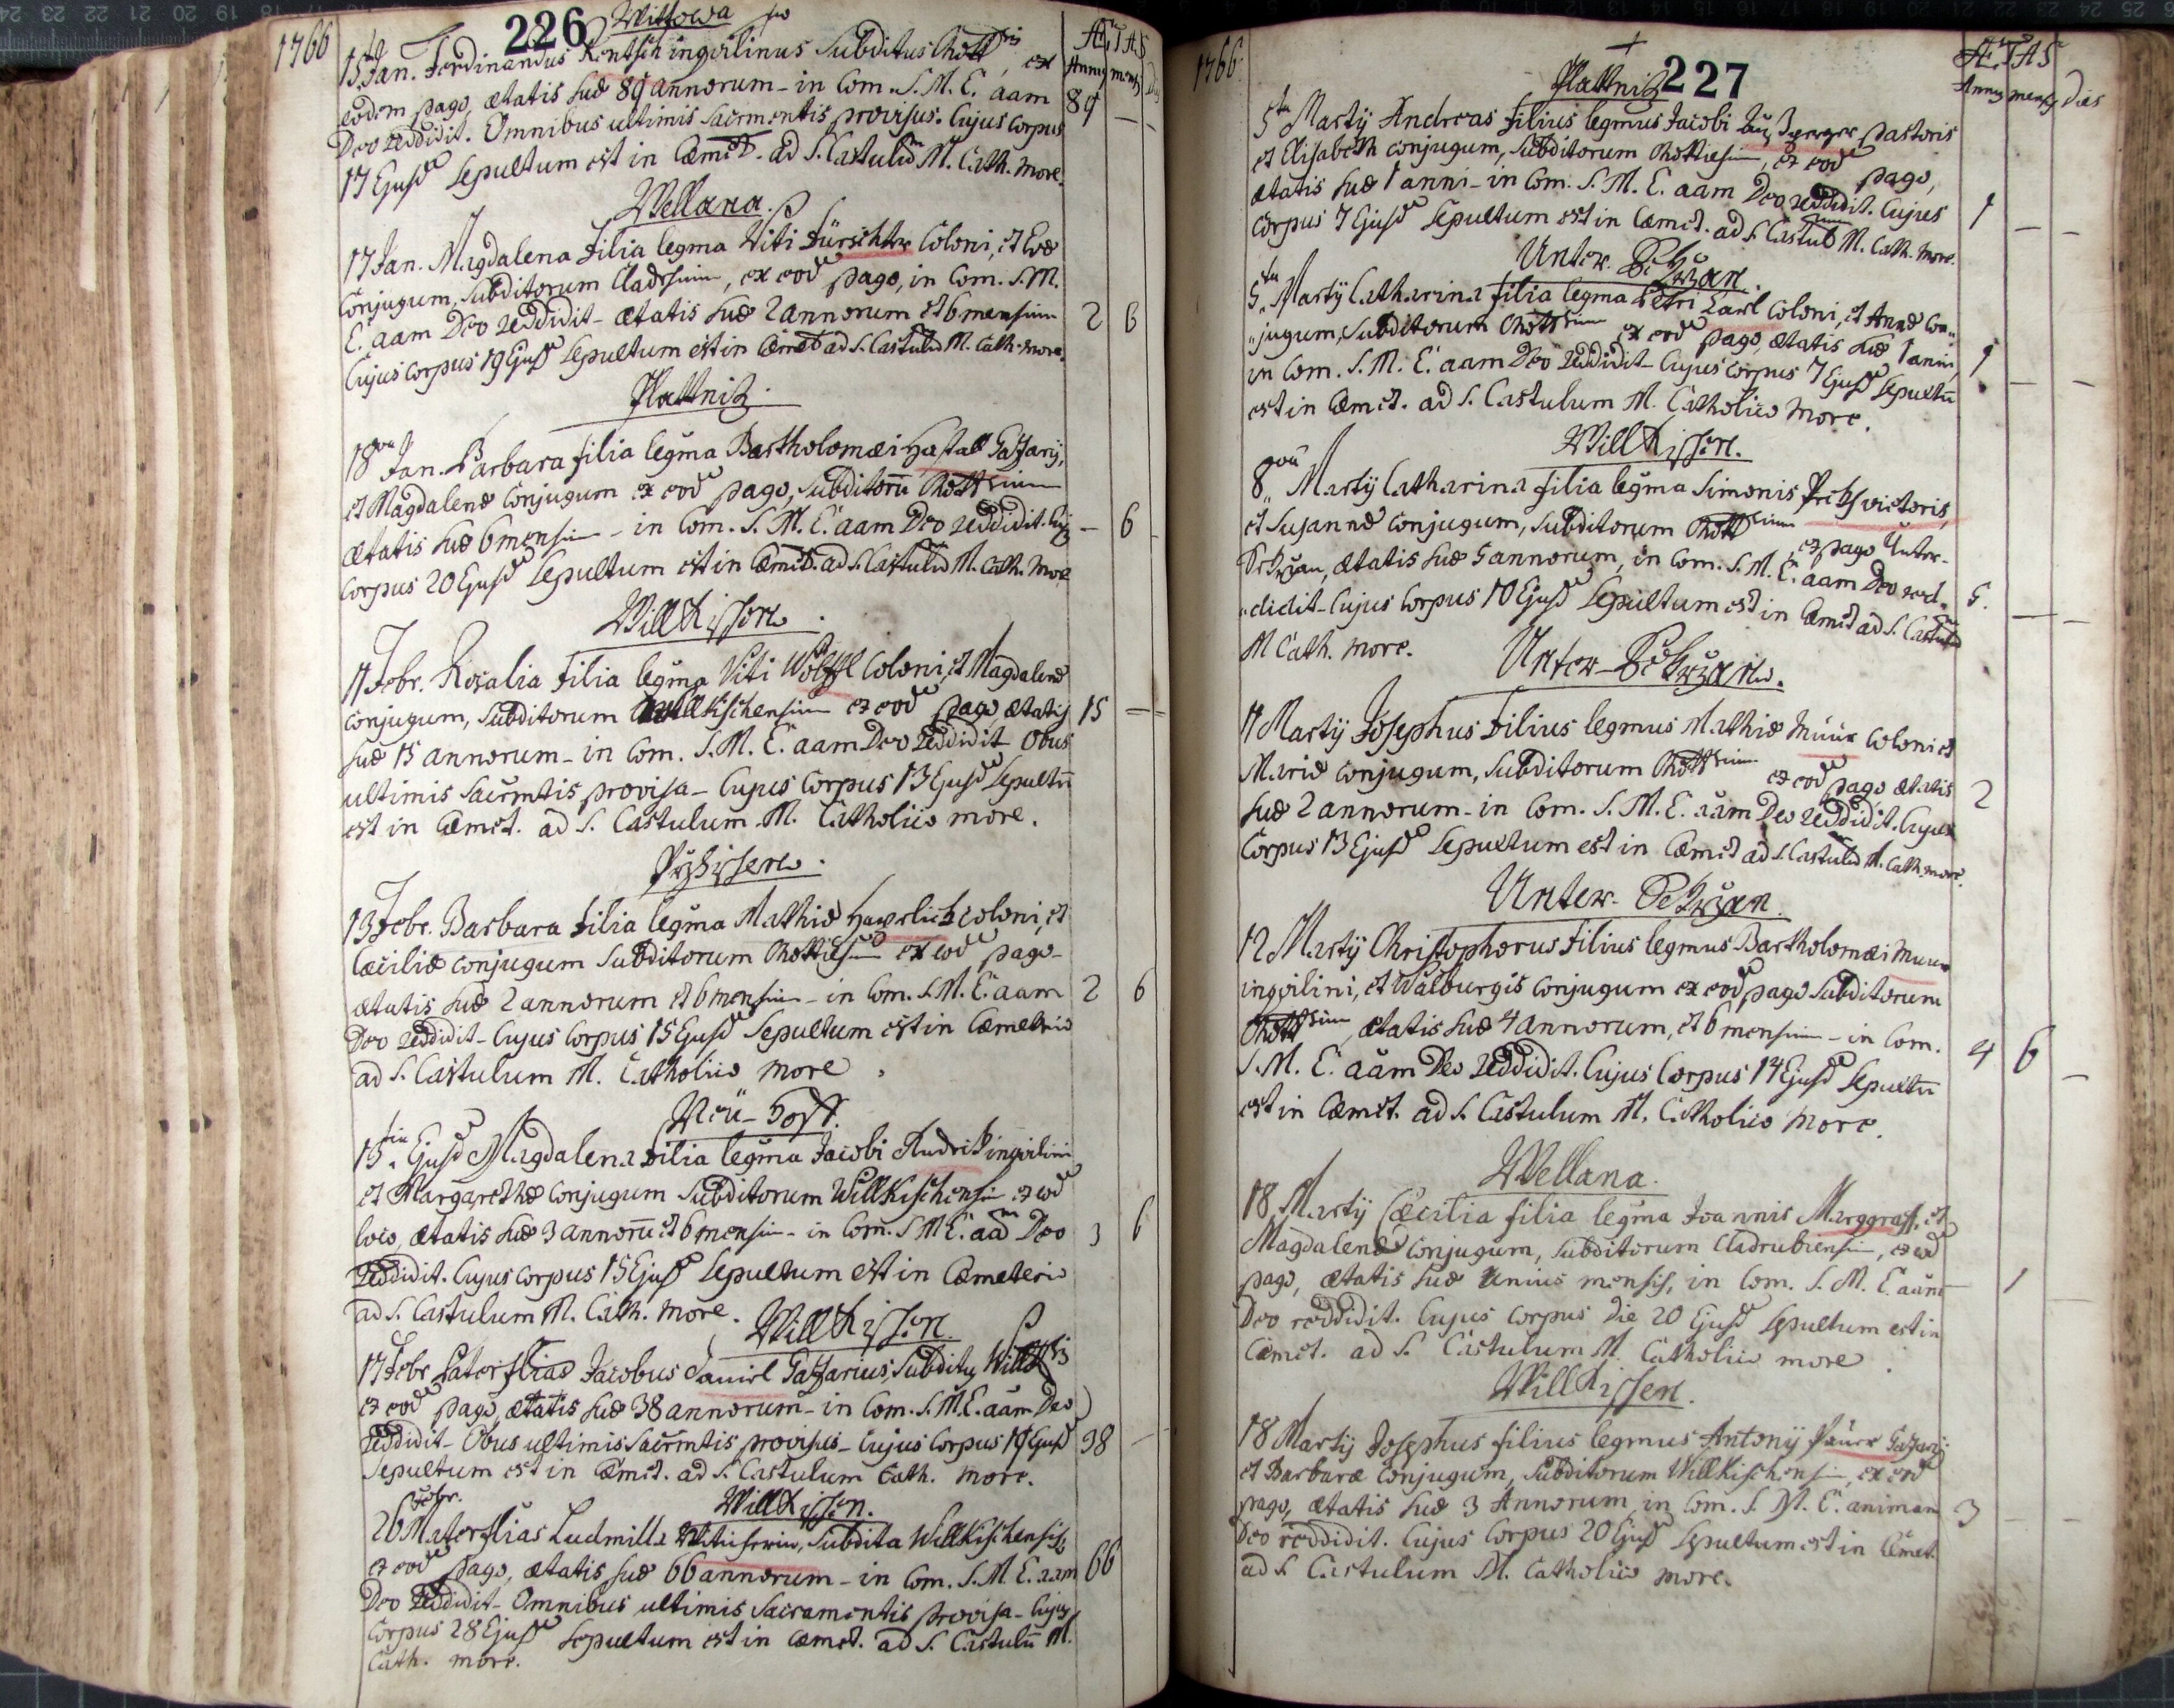 226
1766
Wittowa
Ætas
Annus mens. dies
15 Jan. Ferdinandus Rentsch inqvilinus Subditus Chott ex
eodem pago, ætatis suæ 89 annorum - in Com. S. M. E. aam
89 — —
Deo reddidit. Omnibus ultimis Sacrmentis provisus. Cujus corpus
17 Ejusd Sepultum est in Cæmet. ad S. Castulum M. Cath. more.
Wellana.
17 Jan. Magdalena Filia legma Viti Coloni, et Evæ
Conjugum, Subditorum Cladrsium, ex eod pago, in Com. S. M.
E. aam Deo reddidit - ætatis suæ 2 annorum et 6 mensium
2 6
Cujus corpus 19 Ejusd Sepultum est in Cæmet ad S. Castulum M. Cath. more.
Plattnitz.
18 Jan. Barbara filia legma Bartholomæi Hastall Gazarij,
et Magdalenæ Conjugum ex eod pago, Subditorū Chottsium
ætatis suæ 6 mensium - in Com. S. M. E. aam Deo reddidit. Cuj
— 6 -
Corpus 20 Ejusd Sepultum est in Cæmet. ad S. Castulum M. Cath. more
Willkissen.
11 Febr. Rosalia Filia legma Viti Wölffl Coloni, et Magdalenæ
conjugum, Subditorum Willkischensium ex eod pago, ætatis
15 — —
suæ 15 annorum - in Com. S. M. E. aam Deo reddidit Obus
ultimis Sacrmtis provisa - Cujus Corpus 13 Ejusd Sepultū
est in Cæmet. ad S. Castulum M. Catholico more.
13 Febr. Barbara Filia legma Mathiæ Hawrlick coloni, et
Cæciliæ conjugum Subditorum Chottiesium ex eod pago -
ætatis suæ 2 annorum et 6 mensium - in Com. S. M. E. aam
2 6
Deo reddidit - Cujus Corpus 15 Ejusd Sepultum est in Cæmeterio
ad S. Castulum M. Catholico more.
Neü-Hoff.
13. Ejusd Magdalena Filia legma Jacobi inqvilini
et Margarethæ Conjugum Subditorum Willkischensium ex eod
loco, ætatis suæ 3 annorū et 6 mensium - in Com. S. M. E. aam Deo
3 6
reddidit. Cujus corpus 15 Ejusd Sepultum est in Cæmeterio
ad S. Castulum M. Cath. more.
Willkissen.
17 Febr. Pater flias Jacobus Daniel Gazarius, Subditus Willk
ex eod pago, ætatis suæ 38 annorum - in Com. S. M. E. aam Deo
reddidit - Obus ultimis Sacrmtis provisus - Cujus Corpus 19 Ejusd
38 —
Sepultum est in Cæmet. ad S. Castulum Cath. more.
Willkissen.
26 Febr. Mater flias Ludmilla Subdita Willkischensis
ex eod pago, ætatis suæ 66 annorum - in Com. S. M. E. aam
66
Deo reddidit - Omnibus ultimis Sacramentis provisa - Cujus
Corpus 28 Ejusd Sepultum est in Cæmet. ad S. Castulū M.
Cath. more.
227
1766.
Plattnitz
Ætas
Annus mensis dies
5ta Martij Andreas filius legmus Jacobi pastoris
et Elisabeth conjugum, Subditorum Chottiesium, ex eod pago,
ætatis suæ 1 anni - in Com. S. M. E. aam Deo reddidit. Cujus
1 — —
Corpus 7 Ejusd Sepultum est in Cæmet. ad S. Castulum M. Cath. more.
Unter-Sekržan.
5ta Martij Catharina filia legma Petri Karl Coloni, et Annæ Con-
jugum, Subditorum Chottsium ex eod pago, ætatis suæ 1 anni,
1 — —
in Com. S. M. E. aam Deo reddidit - Cujus corpus 7 Ejusd Sepultū
est in Cæmet. ad S. Castulum M. Catholico more.
Willkissen.
8va Martij Catharina filia legma Simonis victoris,
et Susannæ Conjugum, Subditorum Chottsium ex pago Unter-
Sekržan, ætatis suæ 5 annorum, in Com. S. M. E. aam Deo red-
5. — —
didit - Cujus Corpus 10 Ejusd Sepultum est in Cæmet ad S. Castulum
M. Cath. more.
Unter-Sekržan.
11 Martij Josephus Filius legmus Mathiæ Coloni et
Mariæ Conjugum, Subditorum Chottsium ex eod pago ætatis
2
suæ 2 annorum - in Com. S. M. E. aam Deo reddidit. Cujus
Corpus 13 Ejusd Sepultum est in Cæmet ad S. Castulum M. Cath. more.
Unter-Sekržan.
12 Martij Christophorus Filius legmus Bartholomæi
inqvilini, et Walburgis Conjugum ex eod pago Subditorum
Chottsium, ætatis suæ 4 annorum, et 6 mensium - in Com.
4 6 —
S. M. E. aam Deo reddidit. Cujus Corpus 14 Ejusd Sepultū
est in Cæmet. ad S. Castulum M. Catholico more.
Wellana.
18 Martij Cæcilia filia legma Joannis Marggraff, et
Magdalenæ Conjugum, Subditorum Cladrubiensium, ex eod
pago, ætatis suæ Unius mensis, in Com. S. M. E. aam
— 1 —
Deo reddidit. Cujus Corpus die 20 Ejusd Sepultum est in
Cæmet. ad S. Castulum M. Catholico more.
Willkissen.
18 Martij Josephus filius legmus Antonij Pauer Gazarij
et Barbaræ Conjugum, Subditorum Willkischensium, ex eod
pago, ætatis suæ 3 Annorum, in Com. S. M. E. animam
3 — —
Deo reddidit. Cujus Corpus 20 Ejusd Sepultum est in Cæmet.
ad S. Castulum M. Catholico more.